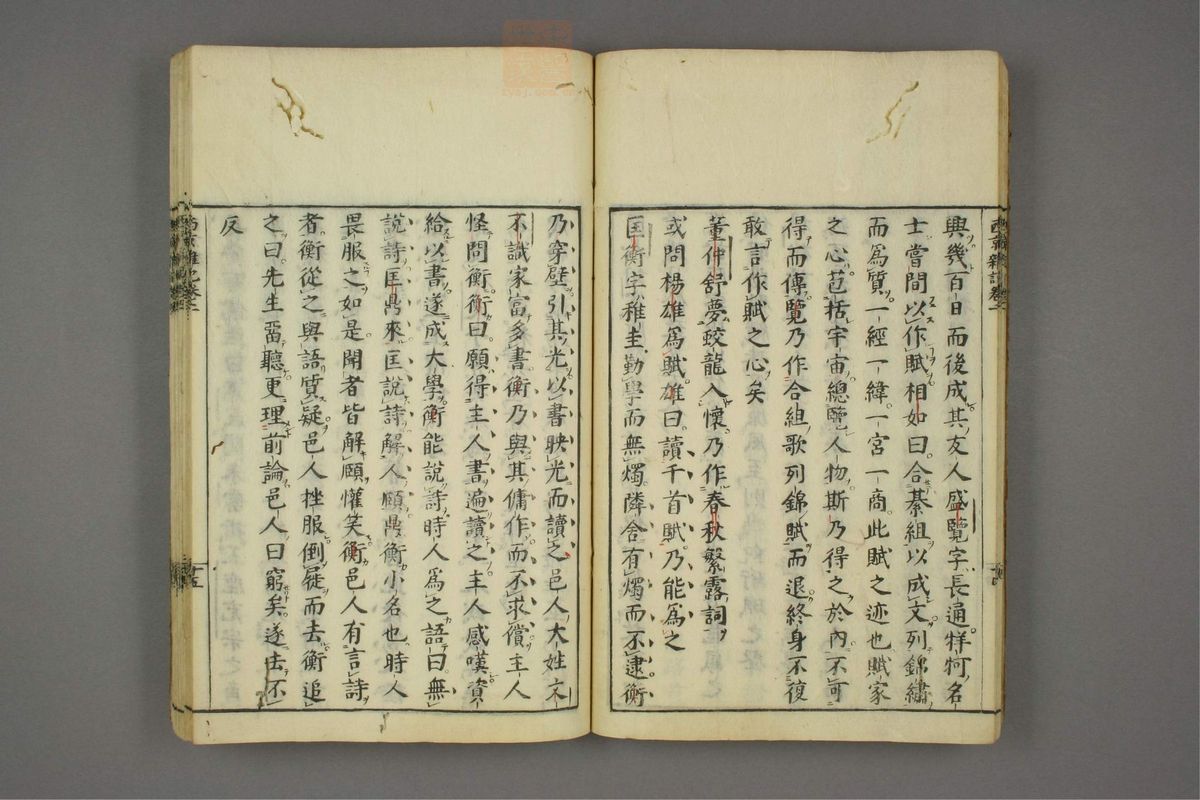 興幾百日而後成其友人盛覽字長通牂牁名
士嘗問以作賦相如曰合綦組以成文列錦繡
而爲質一經一緯一宮一商此賦之迹也賦家
之心苞括宇宙總覽人物斯乃得之於內不可
得而傳覽乃作合組歌列錦賦而退終身不復
敢言作賦之心矣
董仲舒夢蛟龍入懷乃作春秋繁露詞
或問楊雄爲賦雄曰讀千首賦乃能爲之
匡衡字稚圭勤學而無燭隣舍有燭而不逮衡
乃穿壁引其光以書映光而讀之邑人大姓文
不識家富多書衡乃與其傭作而不求償主人
怪問衡衡曰願得主人書遍讀之主人感嘆資
給以書遂成大學衡能說詩時人爲之語曰無
說詩匡鼎來匡說詩解人頤鼎衡小名也時人
畏服之如是聞者皆解頤懽笑衡邑人有言詩
者衡從之與語質疑邑人挫服倒屣而去衡追
之曰先生畱聽更理前論邑人曰窮矣遂去不
反
十五